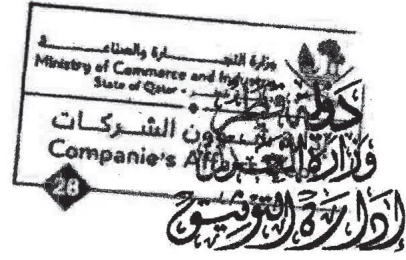 وزارة التجـــارة والصناعـــة
Ministry of Commerce and Industry
State of Qatar
شـــؤون الشـــركـــات
Companie's Affairs
28
دولة قطر
وزارة العدل
إدارة التوثيق